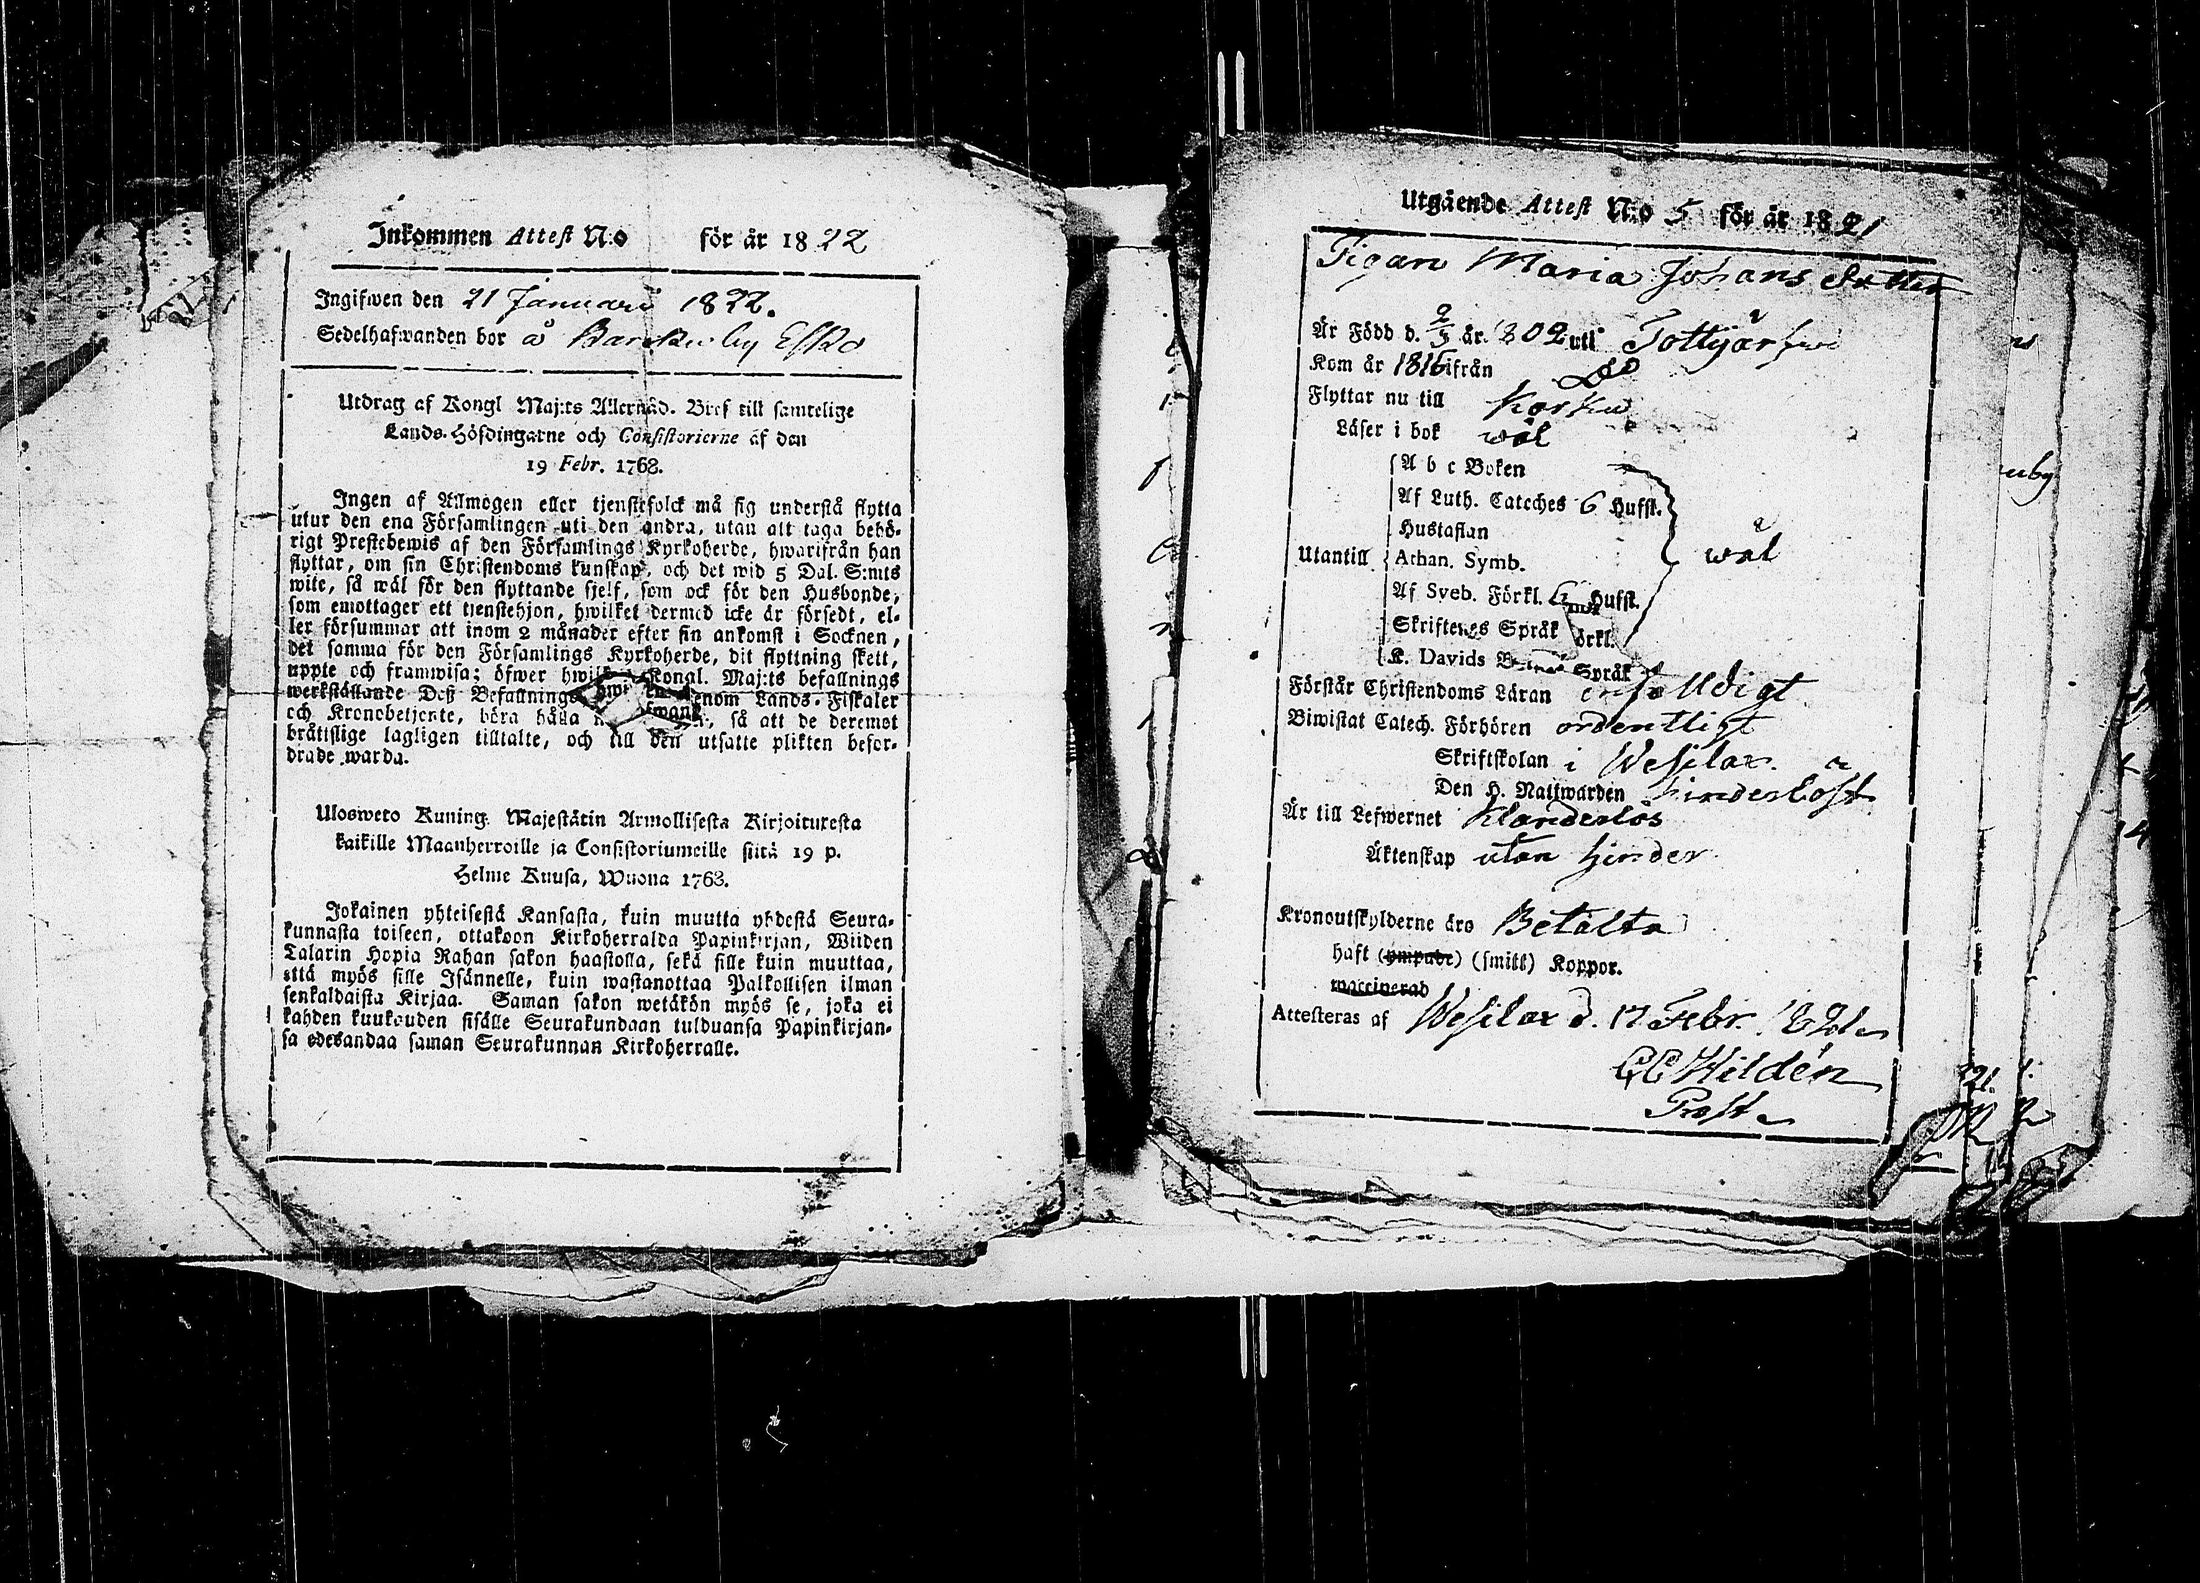 Inkommen Attest N:o för år 1822
Ingifwen den 21 Januarii 1822.
Sedelhafwanden bor å by Esko
Utdrag af Kongl Maj:ts Allernåd. Bref till samtelige
Lands-Höfdingarne och Consistorierne af den
19 Febr. 1768.
Ingen af Allmogen eller tjenstefolck må sig understå flytta
utur den ena Församlingen uti den andra, utan att taga behö-
rigt Prestebewis af den Församlings Kyrkoherde, hwarifrån han
flyttar, om sin Christendoms kunskap, och det wid 5 Dal. S:mts
wite, så wäl för den flyttande sjelf, som ock för den Husbonde,
som emottager ett tjenstehjon, hwilket dermed icke är försedt, el-
ler försummar att inom 2 månader efter sin ankomst i Socknen,
det samma för den Församlings Kyrkoherde, dit flyttning skett,
uppte och framwisa; öfwer Kongl. Maj:ts befallnings
werkställande Deß Befallnings enom Lands-Fiskaler
och Kronobetjente, böra hålla så att de deremot
bråtislige lagligen tilltalte, och till den utsatte plikten befor-
drade warda.
Ulosweto Kuning. Majestätin Armollisesta Kirjoituxesta
kaikille Maanherroille ja Consistoriumeille siitä 19 p.
Helme Kuusa, Wuona 1763.
Jokainen yhteisestä Kansasta, kuin muutta yhdestä Seura-
kunnasta toiseen, ottakoon Kirkoherralda Papinkirjan, Wiiden
Talarin Hopia Rahan sakon haastolla, sekä sille kuin muuttaa,
että myös sille Isännelle, kuin wastanottaa Palkollisen ilman
senkaldaista Kirjaa. Saman sakon wetäkön myös se, joka ei
kahden kuukauden sisälle Seurakundaan tulduansa Papinkirjan-
sa edesandaa saman Seurakunnan Kirkoherralle.
Utgående Attest N:o 5 för år 1821
Pigan Maria Johans dotter
Är Född d. 2/3 år 1802 uti Tottijärfwi
Kom år 1816 ifrån Do
Flyttar nu till Korku
Läser i bok wäl
A b c Boken
Af Luth. Cateches 6 Hufst.
Hustaflan
Utantill Athan. Symb. wäl
Af Sveb. Förkl. Hufst.
Skriftenes Språk örkl.
K. Davids Språk
Förstår Christendoms Läran enfalldigt
Biwistat Catech. Förhören ordentligt
Skriftskolan i Wesilax
Den H. Nattwarden hinderlöst
Är till Lefwernet Klanderlös
Äktenskap utan hinder
Kronoutskylderne äro Betalta
haft (ympade) (smitt) Koppor.
waccinerad
Attesteras af Wesilax d. 17 Febr. 1821
Hildén
Prost